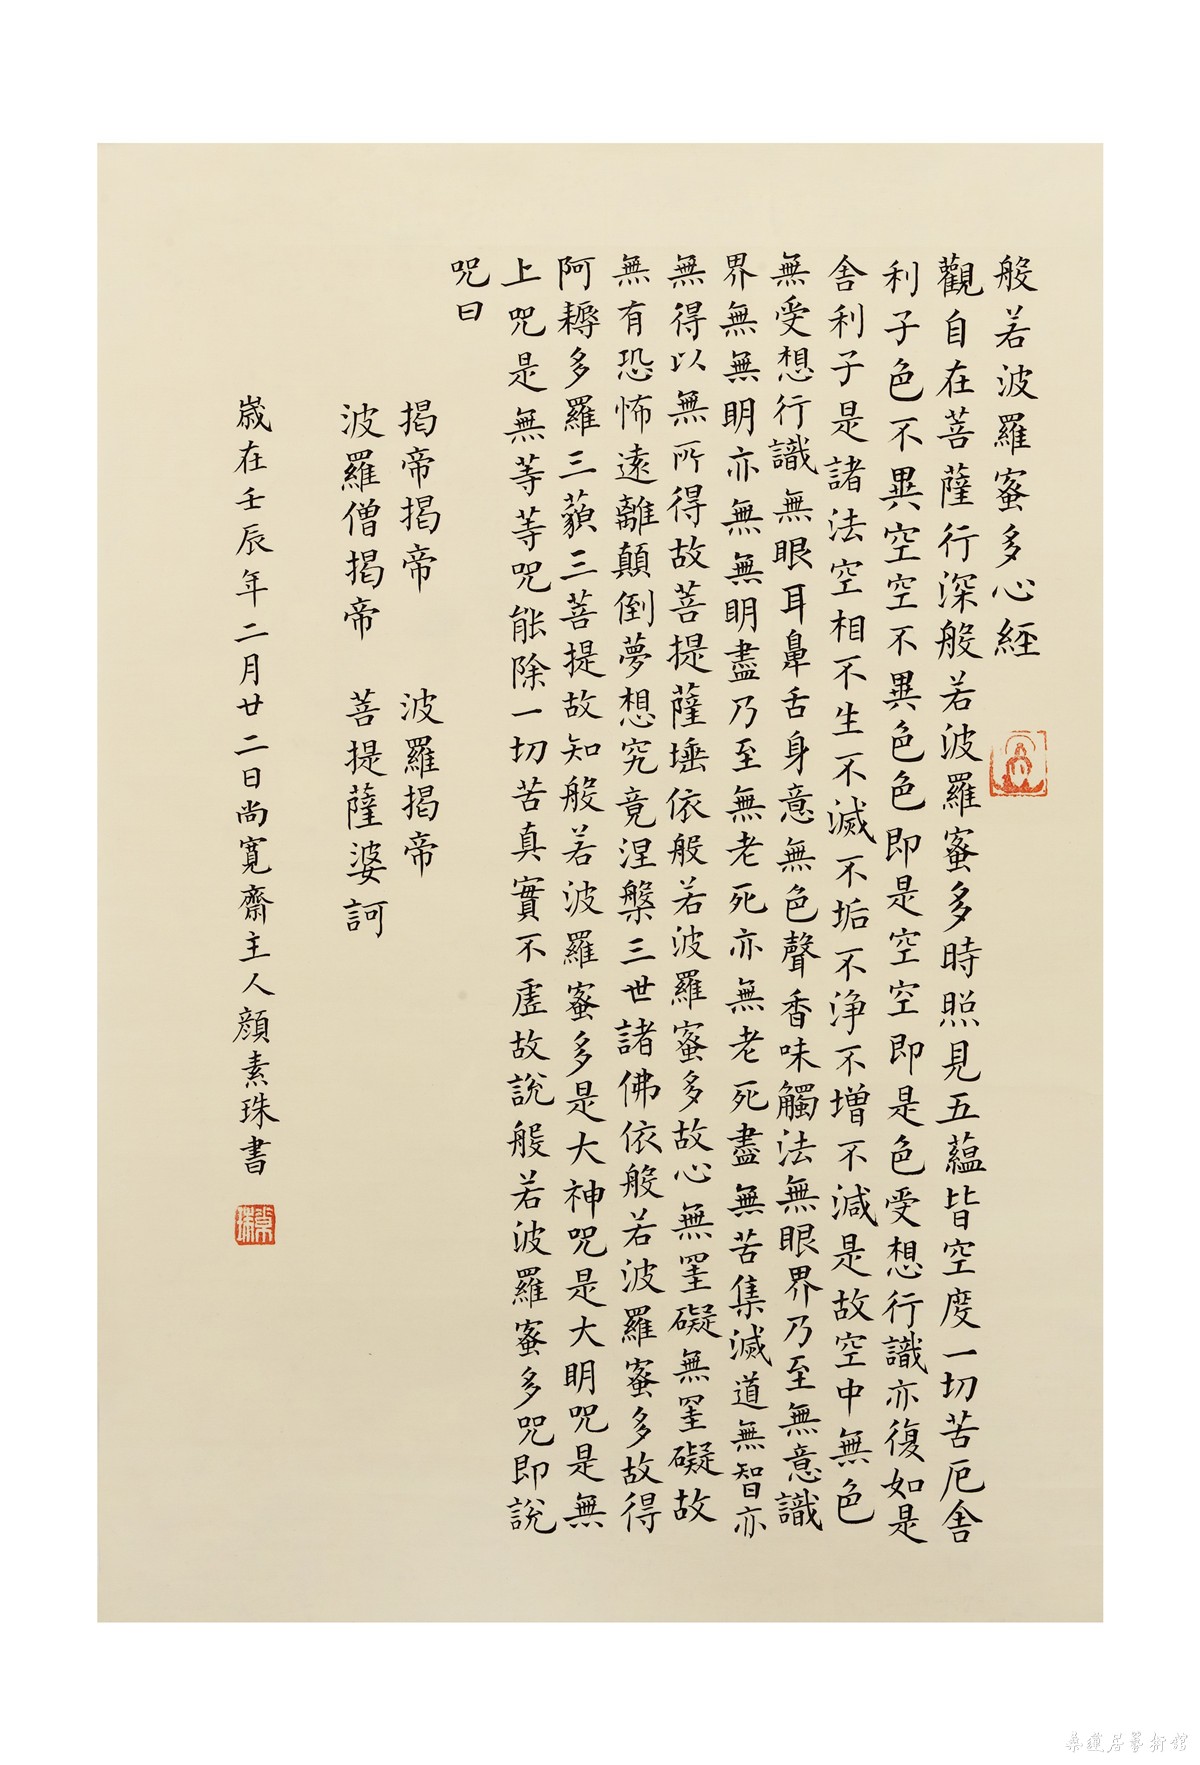 般若波羅蜜多心經
觀自在菩薩行深般若波羅蜜多時照見五蘊皆空度一切苦厄舍
利子色不異空空不異色色即是空空即是色受想行識亦復如是
舍利子是諸法空相不生不滅不垢不淨不增不減是故空中無色
無受想行識無眼耳鼻舌身意無色聲香味觸法無眼界乃至無意識
界無無明亦無無明盡乃至無老死亦無老死盡無苦集滅道無智亦
無得以無所得故菩提薩埵依般若波羅蜜多故心無罣礙無罣礙故
無有恐怖遠離顛倒夢想究竟涅槃三世諸佛依般若波羅蜜多故得
阿耨多羅三藐三菩提故知般若波羅蜜多是大神咒是大明咒是無
上咒是無等等咒能除一切苦真實不虛故說般若波羅蜜多咒即說
咒曰
揭帝揭帝　波羅揭帝
波羅僧揭帝　菩提薩婆訶
歲在壬辰年二月廿二日尚寬齋主人顏素珠書
素珠
桑蓮居藝術館